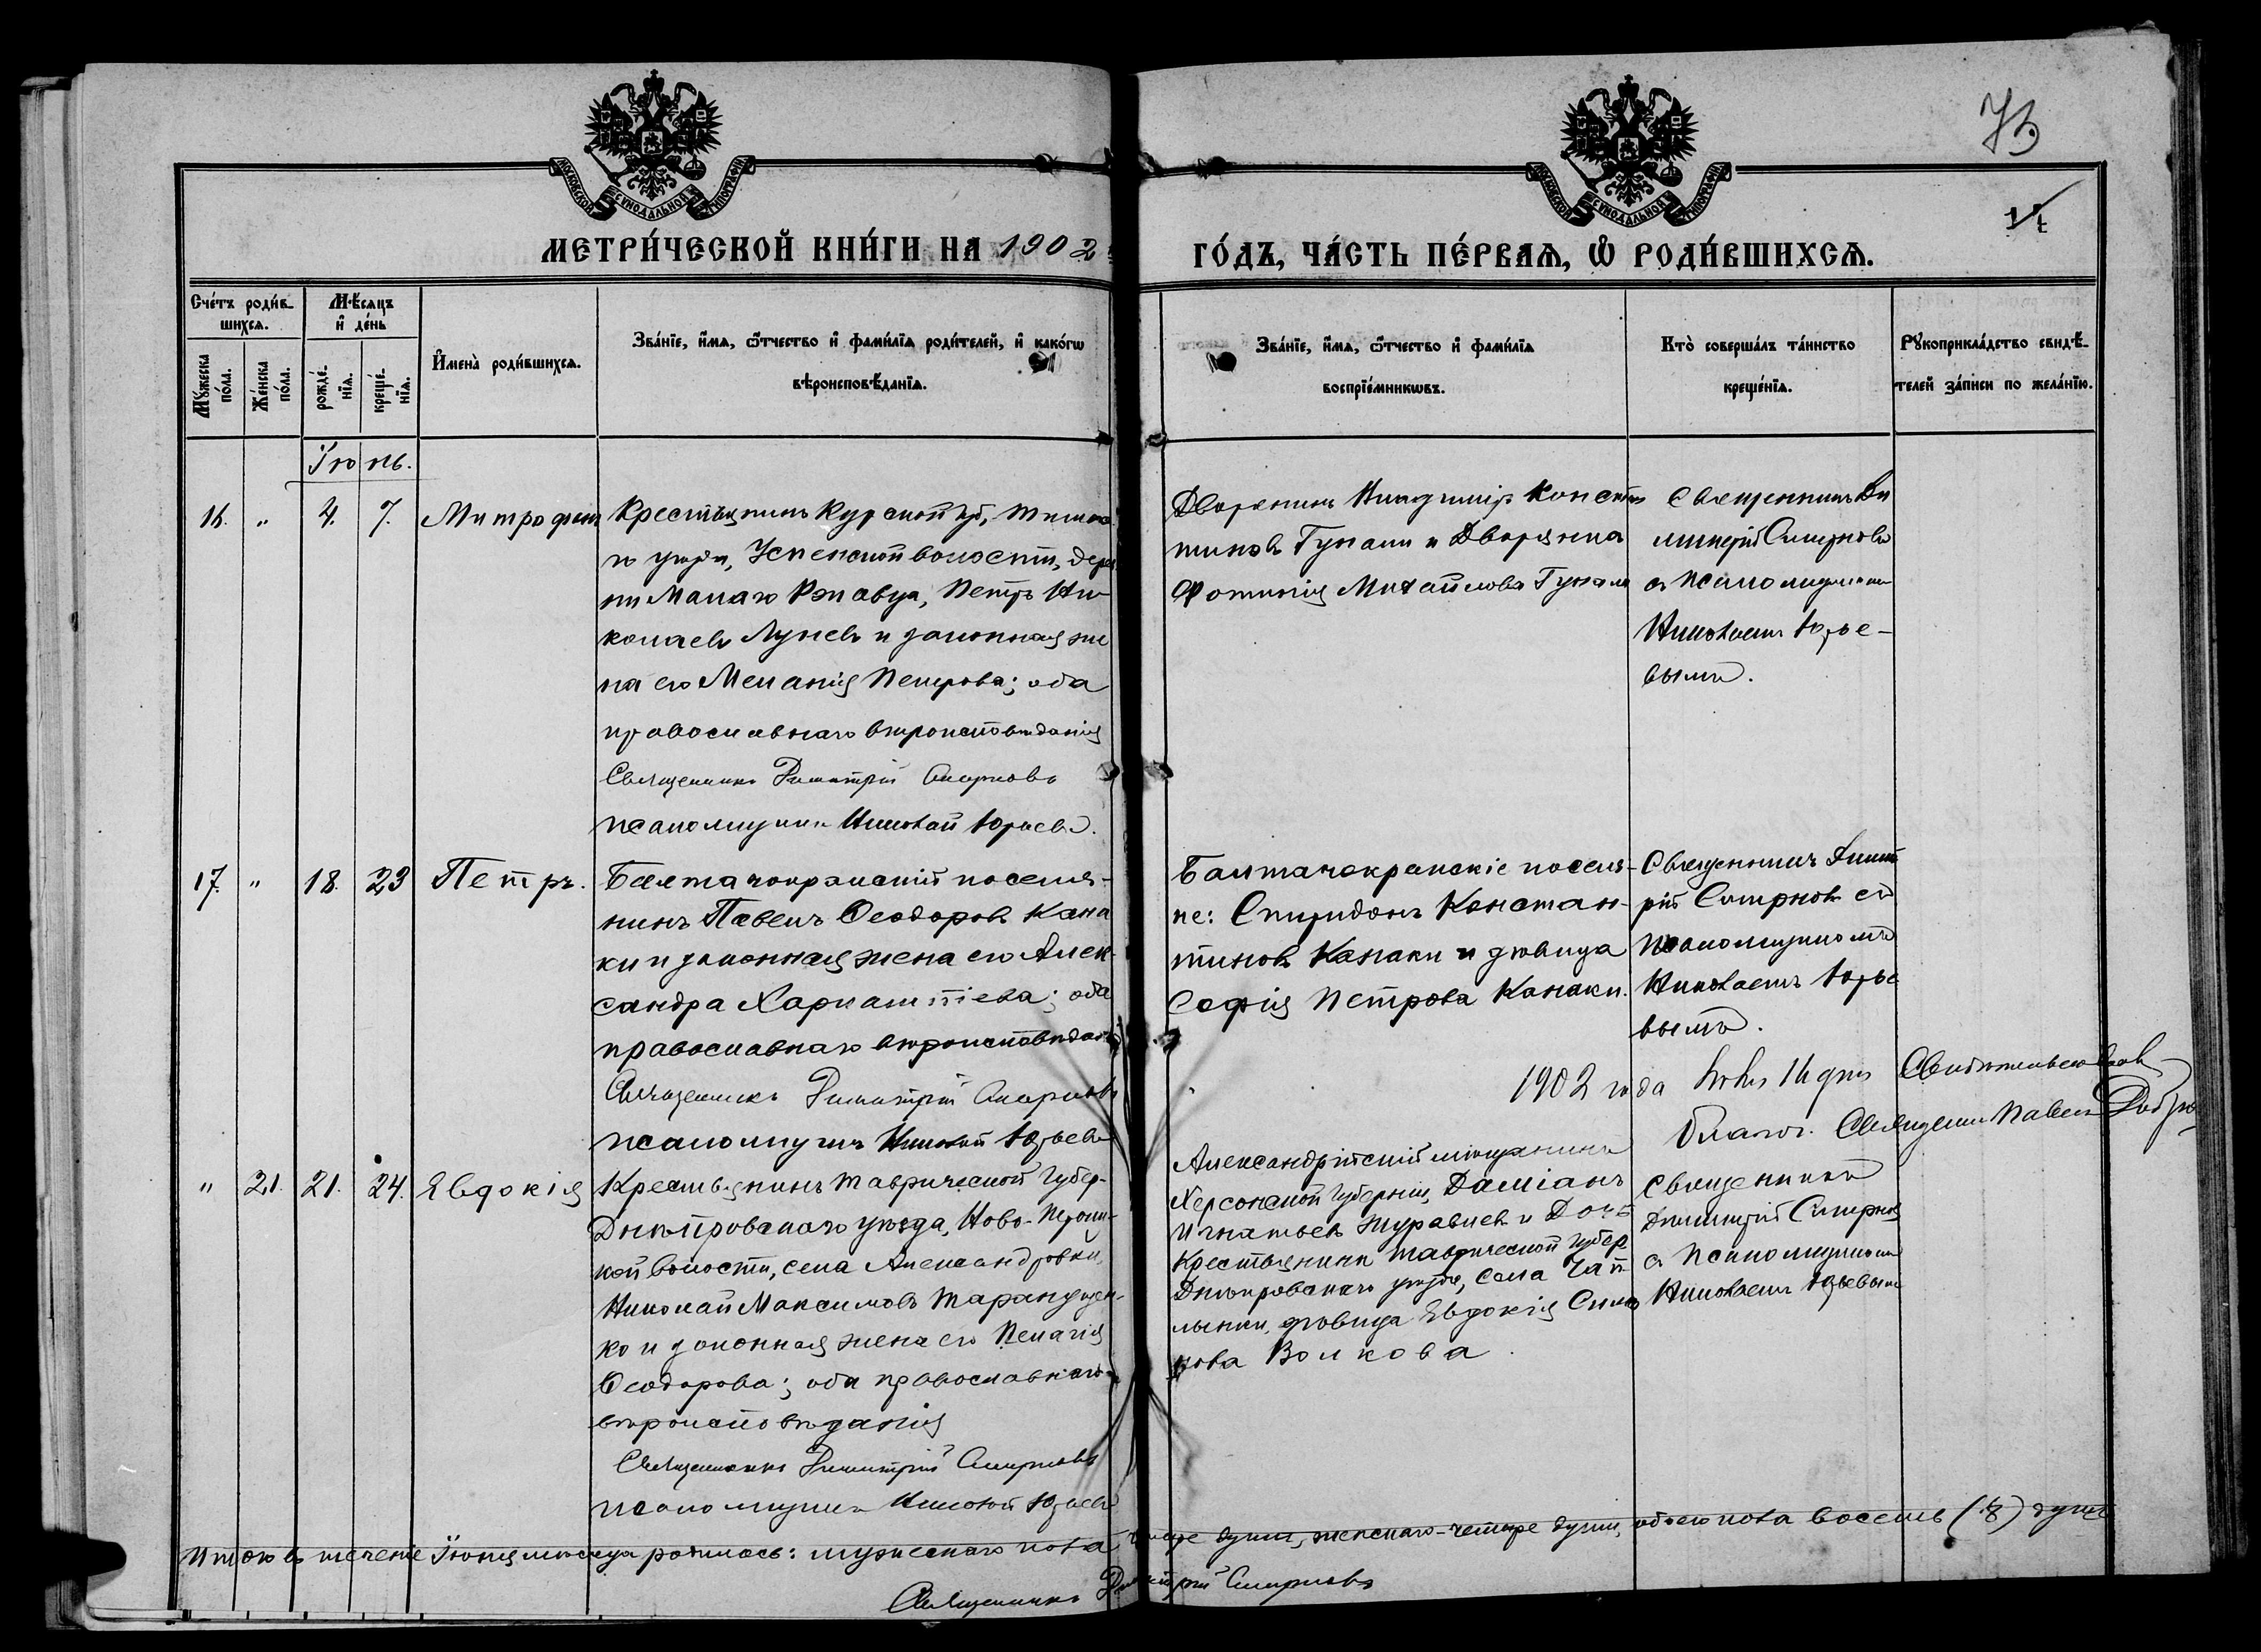 73
МОСКОВСКОЙ СѴНОДАЛЬНОЙ ТИПОГРАФІИ
МОСКОВСКОЙ СѴНОДАЛЬНОЙ ТИПОГРАФІИ
МЕТРИ́ЧЕСКОЙ КНИ́ГИ НА 1902
ГО́ДЪ, ЧА́СТЬ ПЕ́РВАѦ, Ѡ҆ РОДИ́ВШИХСѦ.
Сче́тъ роди́в-
шихсѧ.
Мꙋ́жеска по́ла.
Же́нска по́ла.
Мѣ́сѧцъ
и҆ де́нь
рожде́-
нїѧ.
креще́-
нїѧ.
И҆мена̀ роди́вшихсѧ.
Зва́нїе, и҆́мѧ, ѻ҆́тчество и҆ фами́лїѧ роди́телей, и҆ како́гѡ
вѣроисповѣ́данїѧ.
Зва́нїе, и҆́мѧ, ѻ҆́тчество и҆ фами́лїѧ
воспрїе́мникѡвъ.
Кто̀ соверша́лъ та́инство
креще́нїѧ.
Рꙋкоприкла́дство свидѣ́-
телей за́писи по жела́нїю.
Іюнь.
16. " 4. 7. Митрофан
Крестьянинъ Курской губ,
го уѣзда, Успенской волости, дерев
ни Малаго Ржавца, Петръ Ни-
колаевъ Лунев и законная же
на его Меланія Петрова; оба
православнаго вѣроисповѣданія
Священникъ Димитрій Смирновъ
псаломщикъ Николай Юрьевъ.
Дворянинъ Владиміръ Констан
тиновъ Гунали и Дворянка
Фотинія Михайлова Гунали
Священникъ Ди
митрій Смирновъ
съ псаломщикомъ
Николаемъ Юрье-
вымъ.
17. " 18. 23 Петръ.
Балтачокракскій поселя-
нинъ Павелъ Ѳеодоровъ Кана
ки и законная жена его Алек-
сандра Харлампіева; оба
православнаго вѣроисповѣданія
Священникъ Димитрій Смирновъ
псаломщикъ Николай Юрьевъ
Балтачокракскіе поселя-
не: Спиридонъ Констан-
тиновъ Канаки и дѣвица
Софія Петрова Канаки.
Священникъ Димит
рій Смирновъ съ
псаломщикомъ
Николаемъ Юрье
вымъ.
1902 года 16 дня Свидѣтельствовалъ
Благоч. Священ. Павелъ
" 21. 21. 24. Евдокія
Крестьянинъ Таврической Губер-
Днѣпровскаго уѣзда, Ново-
кой волости, села Александровки,
Николай Максимовъ Таранущен-
ко и законная жена его Пелагія
Ѳеодорова; оба православнаго
вѣроисповѣданія
Священникъ Димитрій Смирновъ
псаломщикъ Николай Юрьевъ
Александрійскій мѣщанинъ
Херсонской Губерніи, Даміанъ
Игнатьевъ Журавлев и Дочь
Крестьянина Таврической Губер
Днѣпровскаго уѣзда, села Чап
лынки, дѣвица Евдокія
нова Волкова.
Священникъ
Димитрій Смирновъ
съ псаломщикомъ
Николаемъ Юрьевымъ
Итого въ теченіе Іюня мѣсяца родилось: мужескаго пола четыре души, женскаго-четыре души, обоего пола восемь (8) душъ
Священникъ Димитрій Смирновъ